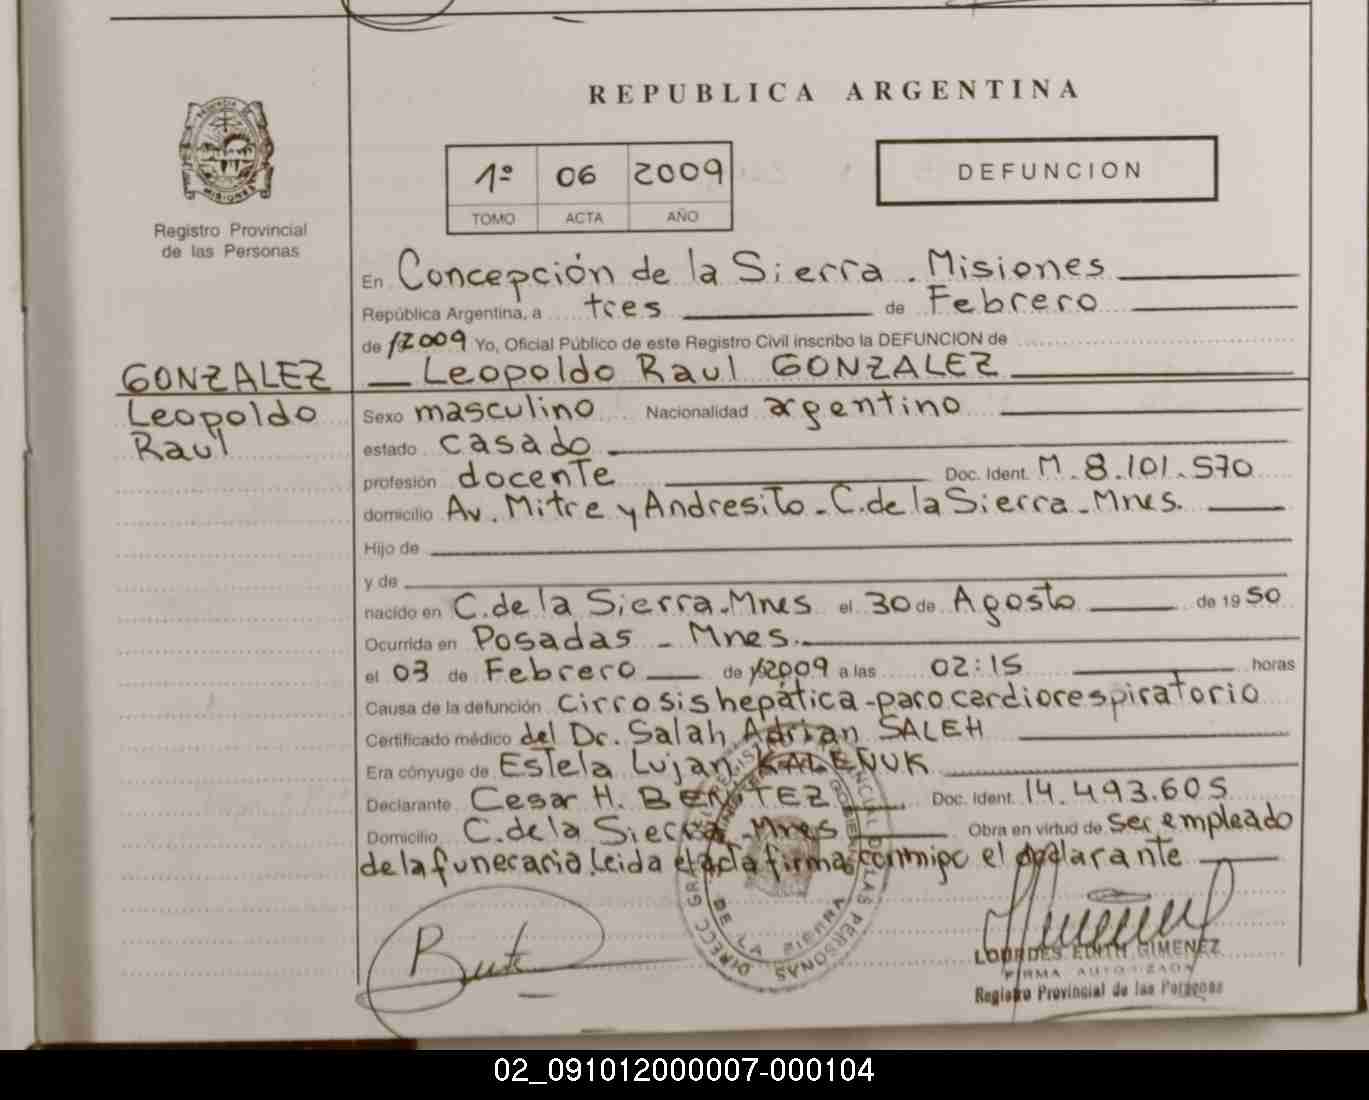 REPUBLICA ARGENTINA
1º 06 2009
TOMO ACTA AÑO
DEFUNCION
Registro Provincial
de las Personas
En Concepción de la Sierra. Misiones
República Argentina, a tres de Febrero
de 2009 Yo, Oficial Público de este Registro Civil inscribo la DEFUNCION de
Leopoldo Raul GONZALEZ
GONZALEZ
Leopoldo
Raul
Sexo masculino Nacionalidad argentino
estado casado
profesión docente Doc. Ident. M. 8.101.570
domicilio Av. Mitre y Andresito - C. de la Sierra - Mnes.
Hijo de
y de
nacido en C. de la Sierra. Mnes el 30 de Agosto de 19 50
Ocurrida en Posadas - Mnes.
el 03 de Febrero de 2009 a las 02:15 horas
Causa de la defunción cirrosis hepática - paro cardiorespiratorio
Certificado médico del Dr. Salah Adrian SALEH
Era cónyuge de Estela Lujan KALEÑUK
Declarante Cesar H. BENITEZ Doc. Ident. 14.493.605
Domicilio C. de la Sierra - Mnes Obra en virtud de ser empleado
de la funeraria. Leida el acta firma conmigo el declarante
LOURDES EDITH GIMENEZ
FIRMA AUTORIZADA
Registro Provincial de las Personas
02_091012000007-000104